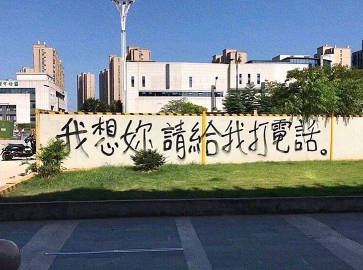 我想妳請給我打電話。